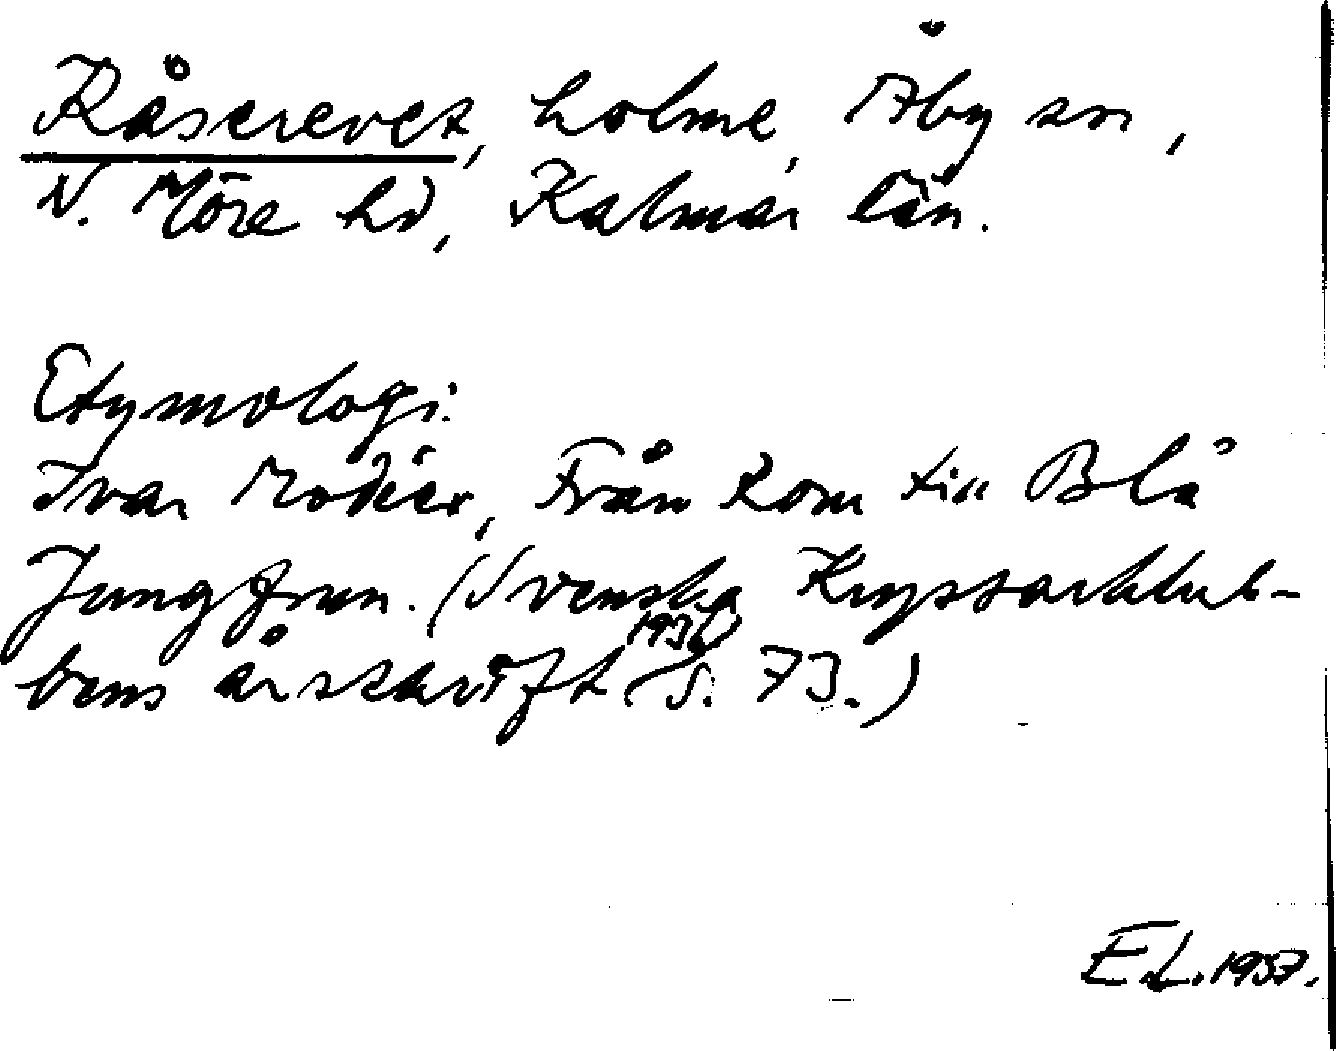 Råserevet, holme, Åby sn,
N. Möre hd, Kalmar län.
Etymologi:
Ivar Modéer, Från Kom till Blå
Jungfrun. (Svenska Kryssarklub-
bens årsskrift s. 73.)
E L. 1957.